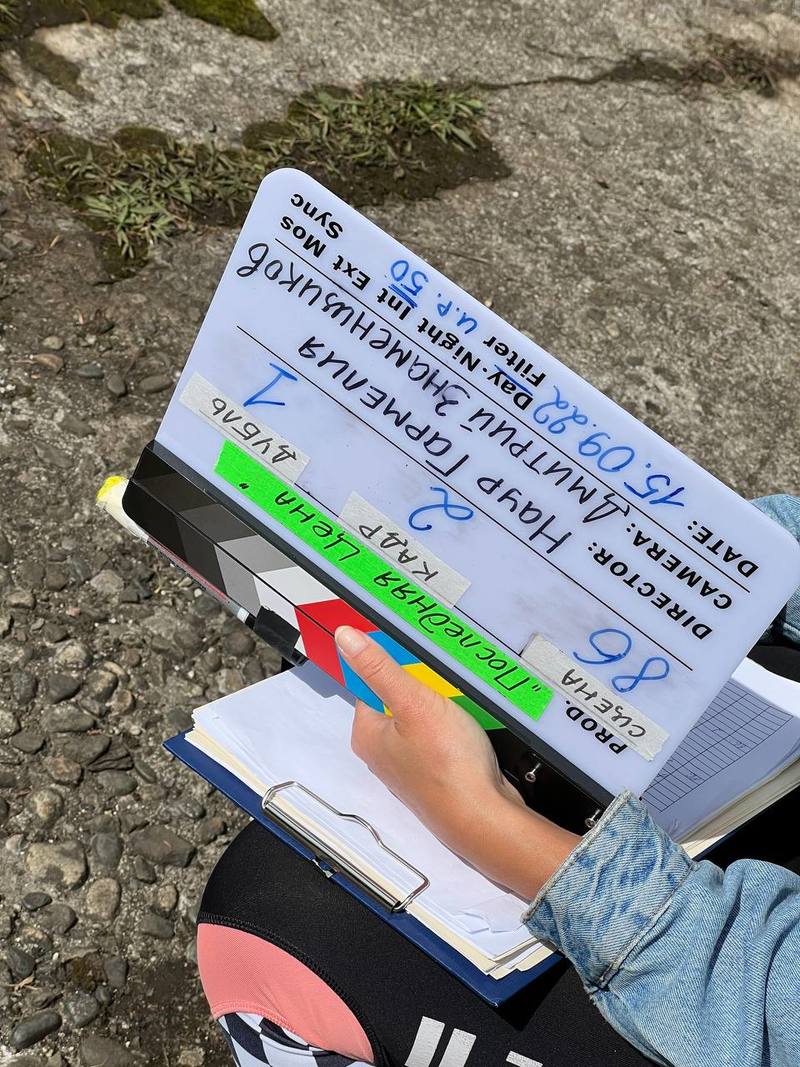 PROD. "Последняя Цена"
СЦЕНА КАДР ДУБЛЬ
86 2 1
DIRECTOR: Наур Гармелия
CAMERA: Дмитрий Знаменщиков
DATE: 15.09.22 Day·Night Int Ext Mos
Filter И.Р. 50 Sync